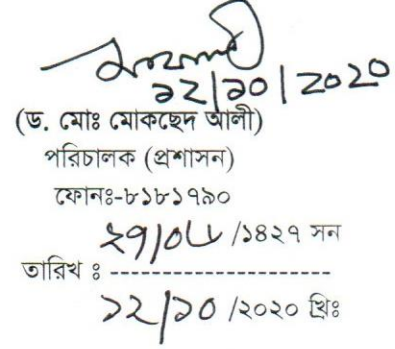 ১২/১০/২০২০
(ড. মোঃ মোকছেদ আলী)
পরিচালক (প্রশাসন)
ফোনঃ-৮১৮১৭৯০
২৭/০৬ /১৪২৭ সন
তারিখ ঃ ----------------------
১২/১০ /২০২০ খ্রিঃ